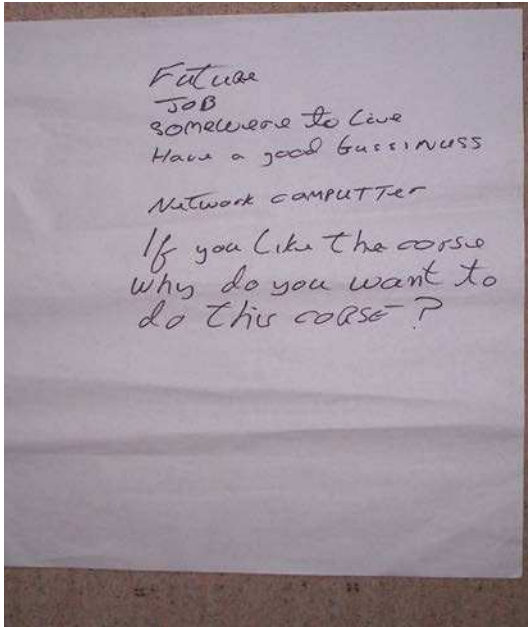 Future
JOB
somewere to Live
Have a good bussinuss
Network computter
If you Like the corse
why do you want to
do this corse ?